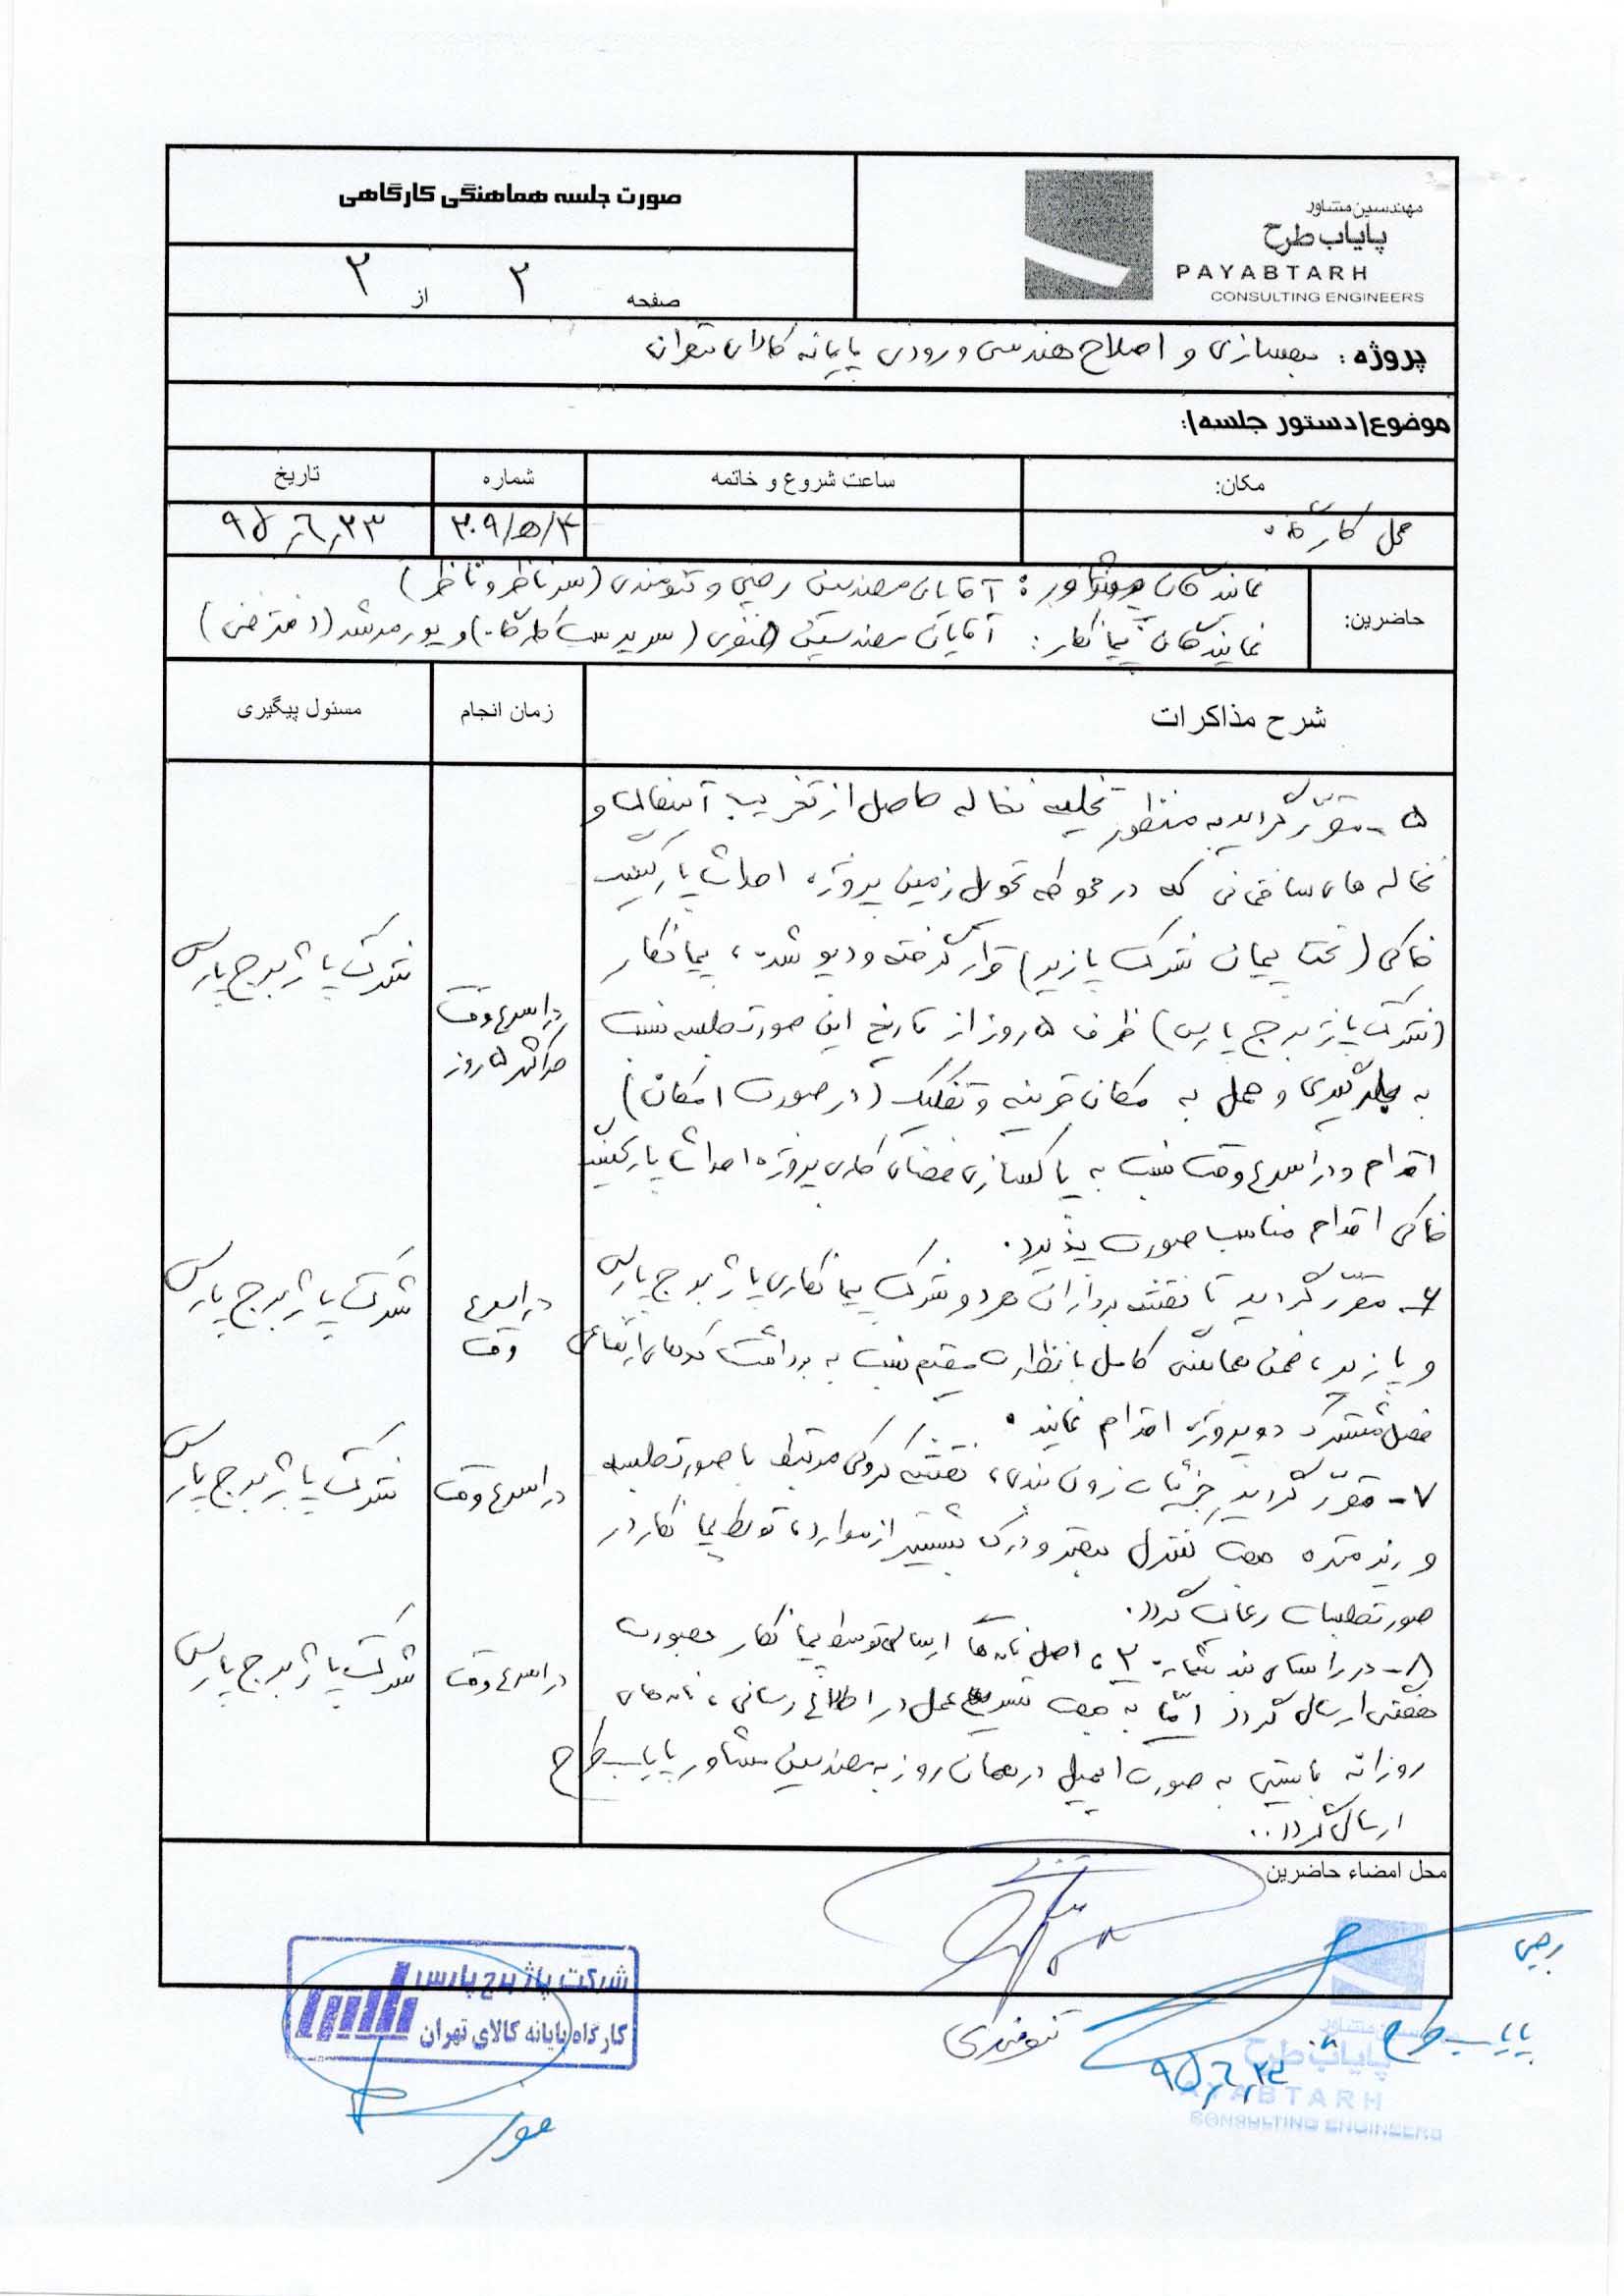 صورت جلسه هماهنگی کارگاهی
مهندسین مشاور
پایاب طرح
PAYABTARH
CONSULTING ENGINEERS
صفحه ۲ از ۲
پروژه : بهسازی و اصلاح هندسی ورودی پایانه کالای تهران
موضوع/دستور جلسه/:
مکان: ساعت شروع و خاتمه شماره تاریخ
محل کارگاه ۳۰۹/ه/۴ ۹۵٫۶٫۲۳
حاضرین:
نمایندگان مشاور : آقایان مهندسین رجبی و تنومندی (سرناظر و ناظر)
نمایندگان پیمانکار : آقایان مهندسین (سرپرست کارگاه) و پورمرشد (دفترفنی)
شرح مذاکرات زمان انجام مسئول پیگیری
۵- مقرّر گردید به منظور تخلیه نخاله حاصل از تخریب آسفالت و
نخاله های ساختمانی که در محوطه تحویل زمین پروژه احداث پارکینگ
خاکی (تحت پیمان شرکت پازیر) قرار گرفته و دپو شده، پیمانکار
(شرکت پاژ برج پارس) ظرف ۵ روز از تاریخ این صورتجلسه نسبت
به بارگیری و حمل به مکان قرینه و تفکیک (در صورت امکان)
اقدام و در اسرع وقت نسبت به پاکسازی فضای کاری پروژه احداث پارکینگ
خاکی اقدام مناسب صورت پذیرد.
در اسرع وقت
حداکثر ۵ روز
شرکت پاژ برج پارس
۶- مقرّر گردید تا نقشه برداران هر دو شرکت پیمانکاری پاژ برج پارس
و پازیر، ضمن هماهنگی کامل با نظارت مقیم نسبت به برداشت کدهای ارتفاعی
فصل مشترک دو پروژه اقدام نمایند.
در اسرع
وقت
شرکت پاژ برج پارس
۷- مقرّر گردید جزئیات زون بندی، نقشه کروکی مرتبط با صورتجلسه
و ریزمتره جهت کنترل بهتر و درک بیشتر از موارد، توسط پیمانکار در
صورتجلسات رعایت گردد.
در اسرع وقت
شرکت پاژ برج پارس
۸- در راستای بند شماره ۳، اصل نامه ها ارسالی توسط پیمانکار بصورت
هفتگی ارسال گردد امّا به جهت تسریع عمل در اطلاع رسانی، نامه های
روزانه بایستی به صورت ایمیل در همان روز به مهندسین مشاور پایاب طرح
ارسال گردد..
در اسرع وقت
شرکت پاژ برج پارس
محل امضاء حاضرین
رجبی
پایاب طرح
۹۵٫۶٫۲۳
تنومندی
شرکت پاژ برج پارس
کارگاه پایانه کالای تهران
مهندسین مشاور
پایاب طرح
PAYABTARH
CONSULTING ENGINEERS